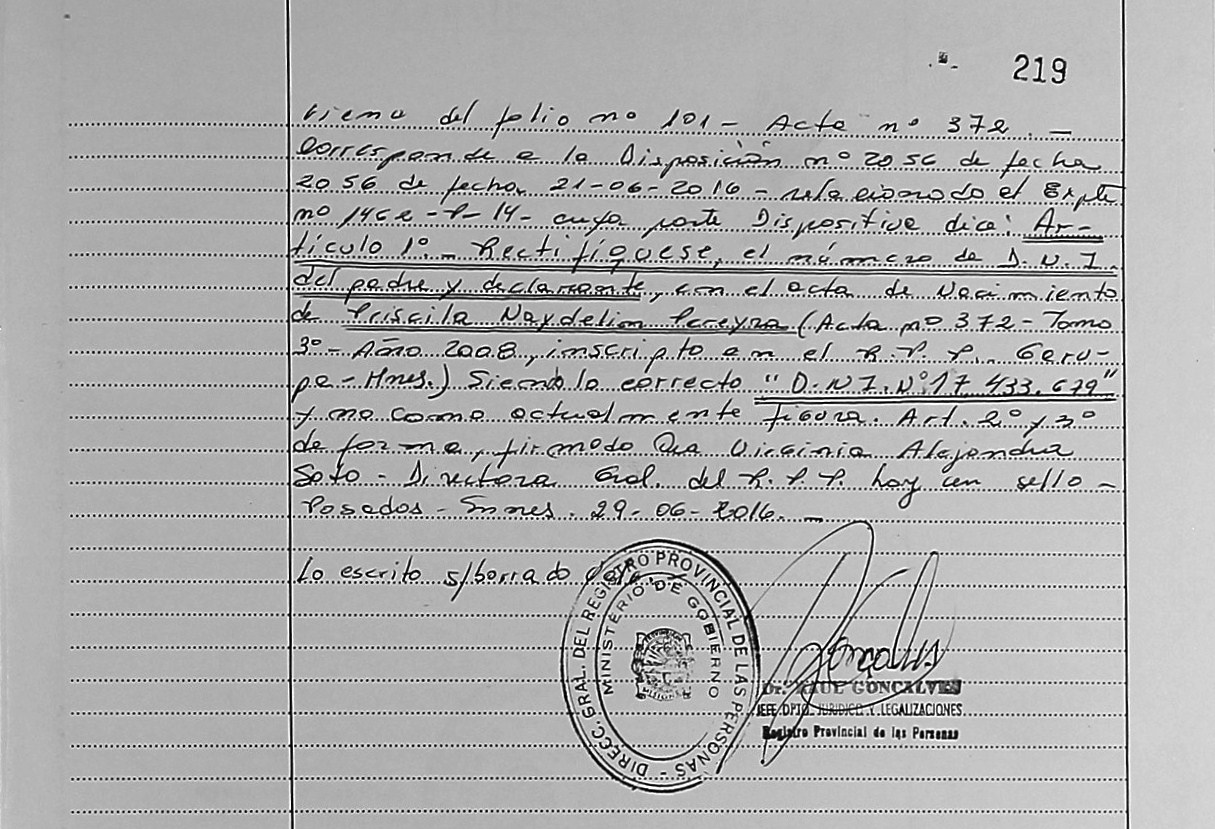 219
viene del folio nº 101 - Acta nº 372. -
Corresponde a la Disposición nº 2056 de fecha
2056 de fecha 21-06-2016 - relacionado el Expte
nº 1462 - P - 14 - cuya parte Dispositiva dice: Ar-
tículo 1º. - Rectifíquese, el número de D.N.I.
del padre y declarante, en el acta de Nacimiento
de Priscila Naydelin Pereyra (Acta nº 372 - Tomo
3º - Año 2008, inscripto en el R.P.P. Garu-
pa - Mnes.) Siendo lo correcto "D.N.I. Nº 17.433.679"
y no como actualmente figura. Art. 2º y 3º
de forma, firmado Dra Virginia Alejandra
Soto - Directora Gral. del R.P.P. hay un sello -
Posadas - Mnes. 29-06-2016. -
Lo escrito s/borrado
DIRECC. GRAL. DEL REGISTRO PROVINCIAL DE LAS PERSONAS -
MINISTERIO DE GOBIERNO
MISIONES
Dr. RAUL GONCALVES
JEFE DPTO. JURIDICO Y LEGALIZACIONES
Registro Provincial de las Personas